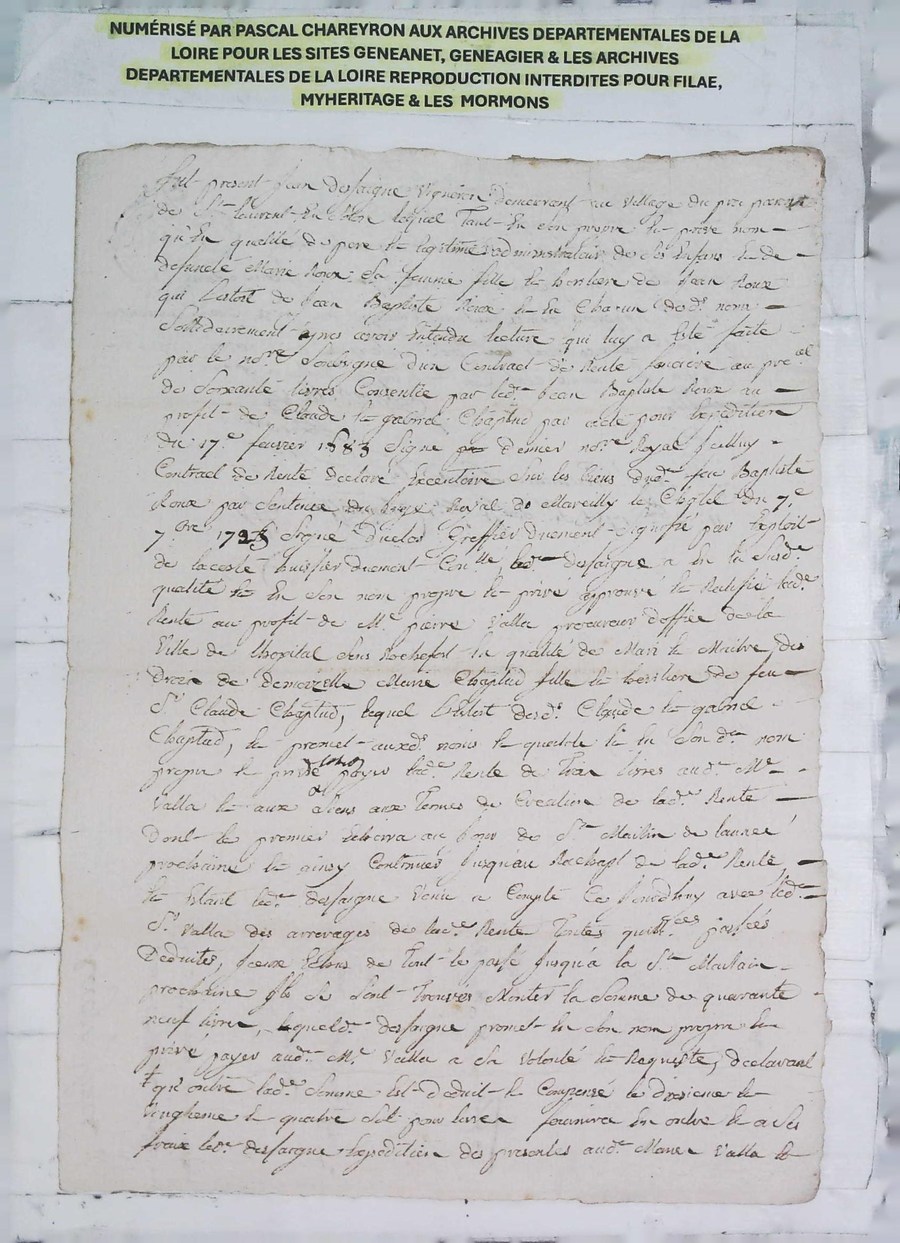 NUMÉRISÉ PAR PASCAL CHAREYRON AUX ARCHIVES DEPARTEMENTALES DE LA
LOIRE POUR LES SITES GENEANET, GENEAGIER & LES ARCHIVES
DEPARTEMENTALES DE LA LOIRE REPRODUCTION INTERDITES POUR FILAE,
MYHERITAGE & LES MORMONS
fut present Jean desfaigne vigneron demeurant au village du pra paroisse
de St laurent En lequel Tant En son propre Et privé nom
qu'En qualité de pere Et legitime administrateur de ses Enfans Et de
defuncte Marie Roux sa femme fille Et heritiere de Jean Roux
qui L'estoit de Jean Baptiste Roux Et En Chacun desds noms
Sollidairement apres avoir Entendu lecture qui luy a Esté faite
par le nore Soubsigné d'un Contract de Rente fonciere au pral
de Soixante livres Consentie par ledt Jean Baptiste Roux au
profit de Claude Et gabriel Chaptud par acte pour Expedition
du 17e feuvrier 1683 Signé nore Royal
Contract de Rente declaré Executoire Sur les biens dudt feu Baptiste
Roux par Sentence du Juge Royal de Mareilly le Chatel du 7e
7bre 172 Signé duclos Greffier duement Signifié par Exploit
de lacoste huissier duement Conllé, ledt desfaigne a En la Susde
qualité Et En Son nom propre Et privé approuvé Et Ratifié lade
Rente au profit de Me pierre Valla procureur d'office de la
Ville de lhopital Sous Rochefort En qualité de Mari Et Maitre des
Droits de demoizelle Marie Chaptud fille Et heritiere de feu
Sr Claude Chaptud, lequel L'estoit desds Claude Et gabriel
Chaptud, Et promet auxds noms Et qualité Et En Son dt nom
propre Et privé payer lade Rente de Trois livres audt Me
Valla Et aux Siens aux Termes de Creation de lade Rente
Dont le premier Echerra au Jour de St Martin de lannée
prochaine Et ainsy Continuer Jusqu'au Rachapt de lade Rente
Et Estant ledt desfaigne Venu a Compte Ce Jourdhuy avec ledt
Sr Valla des arrerages de lade Rente Toutes quittces passées
Deduites, Iceux Echus de Tout le passé Jusqu'a la St Martin
prochaine Ils Se Sont Trouvés Monter la Somme de quarante
neuf livres, laquelle desfaigne promet En Son nom propre Et
privé payer audt Me Valla a Sa Volonté Et Requeste, declarant
qu'outre lade Somme Est deduit Et Compensé le dixieme Et
Vingtieme Et quatre Sols pour livre fournira En outre Et a Ses
fraix ledt desfaigne Expedition des presentes audt Valla Et